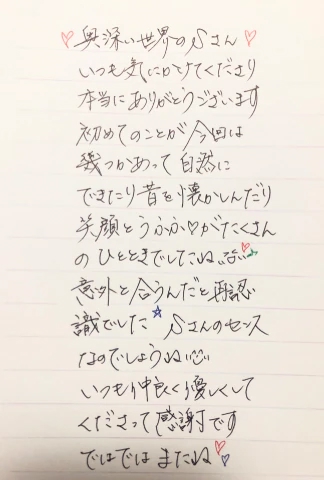 ♡奥深い世界のSさん♡
いつも気にかけてくださり
本当にありがとうございます
初めてのことが今回は
幾つかあって自然に
できたり昔を懐かしんだり
笑顔とうふふ♡がたくさん
のひとときでしたね
意外と合うんだと再認
識でした☆Sさんのセンス
なのでしょうね
いつも仲良く優しくして
くださって感謝です
ではではまたね♡♡